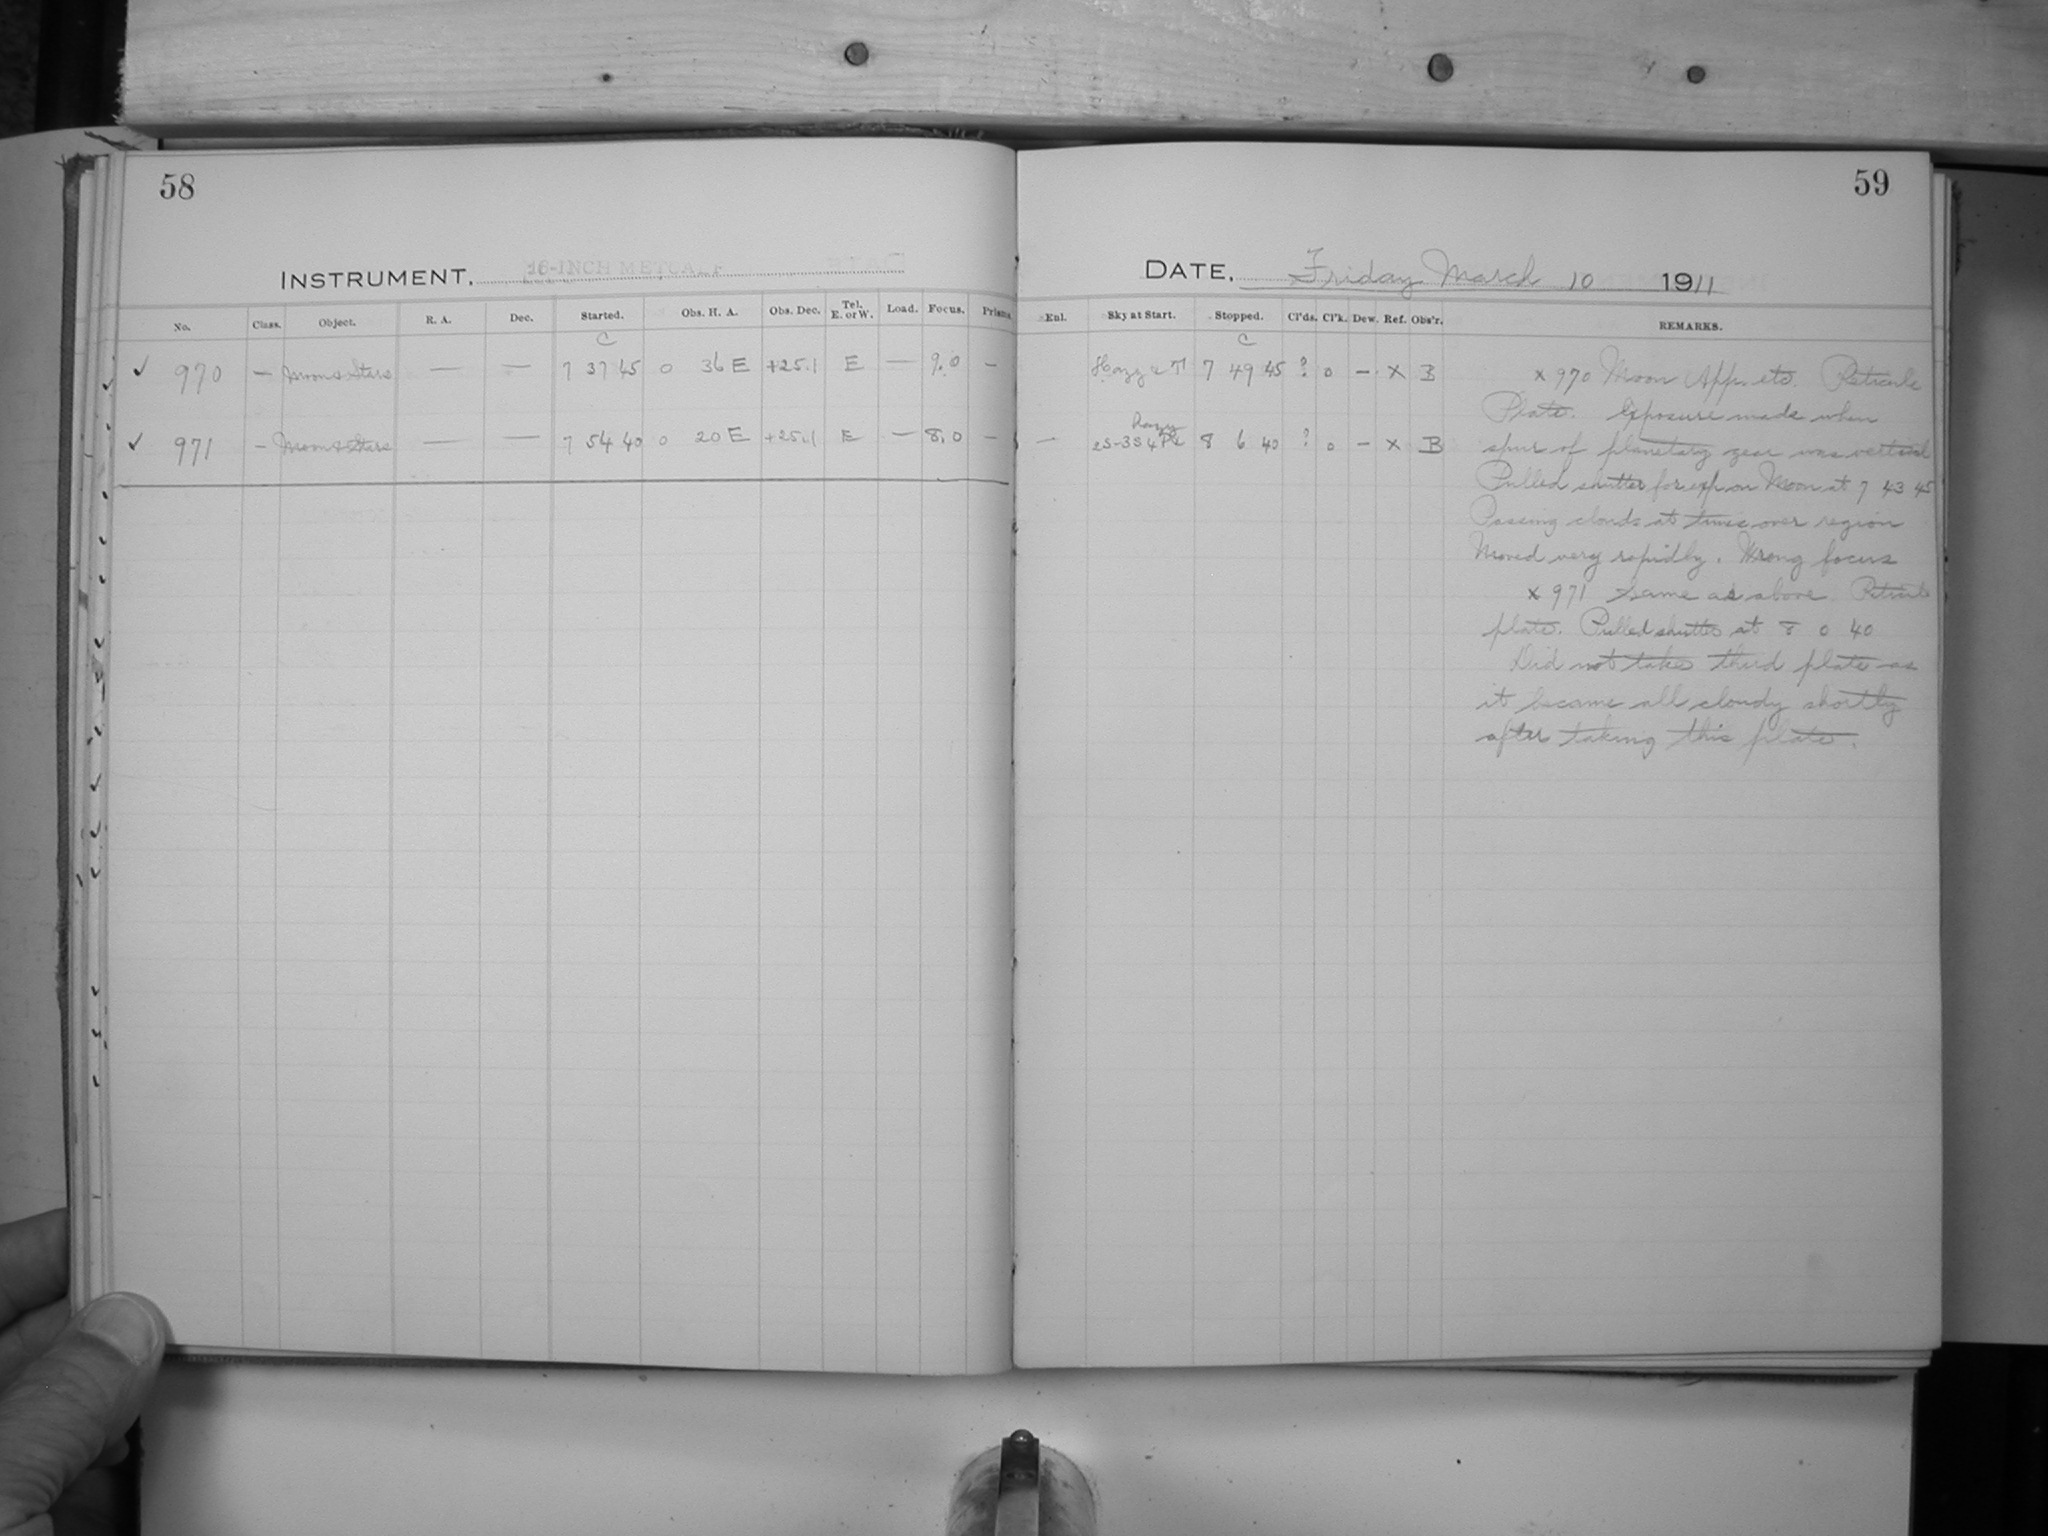 58
INSTRUMENT, 16-INCH METCALF
No. Class. Object. R. A. Dec. Started. Obs. H. A. Obs. Dec. Tel. E. or W. Load. Focus. Prisms.
C
✓ 970 — Moon & Stars — — 7 37 45 0 36 E +25.1 E — 9.0 —
✓ 971 — Moon & Stars — — 7 54 40 0 20 E +25.1 E — 8.0 —
59
DATE, Friday March 10 1911
Enl. Sky at Start. Stopped. Cl'ds. Cl'k. Dew. Ref. Obs'r. REMARKS.
C
Hazy 7 49 45 ? 0 — x B
Hazy
— 2S-3S 8 6 40 ? 0 — x B
x 970 Moon App. etc. Reticule
Plate. Exposure made when
spur of planetary gear was vertical
Pulled shutter for exp on Moon at 7 43 45
Passing clouds at times over region
Moved very rapidly. Wrong focus
x 971 Same as above Reticule
plate. Pulled shutter at 8 0 40
Did not take third plate as
it became all cloudy shortly
after taking this plate.